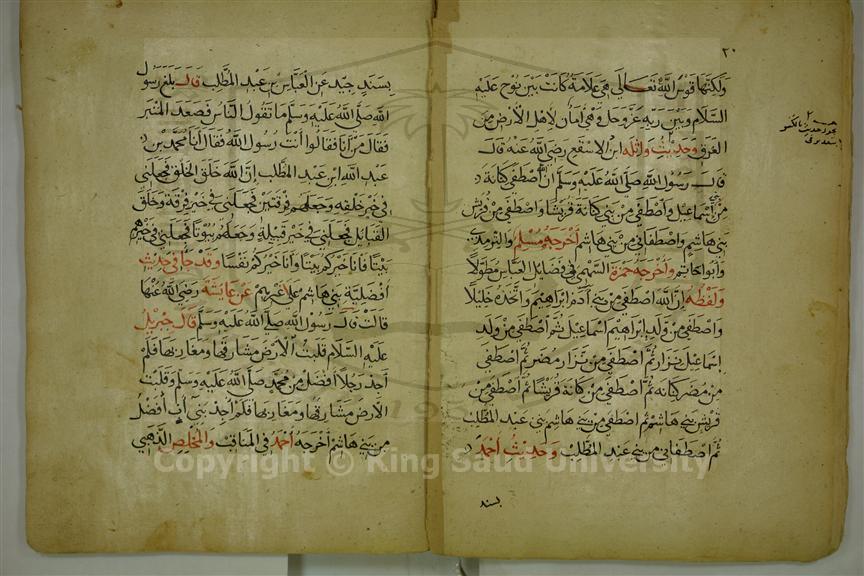 ٢٠
ولكنها قوس الله تعالى هي علامة كانت بين نوح عليه
السلام وبين ربه عز وجل وهي أمان لأهل الأرض من
الغرق وحديث واثلة ابن الأسقع رضي الله عنه قال
قال رسول الله صلى الله عليه وسلم ان الله اصطفى كنانة
من بني إسماعيل واصطفى من بني كنانة قريشا واصطفى من قريش
بني هاشم واصطفاني من بني هاشم أخرجه مسلم والترمذي
وأبو حاتم وأخرجه حمزة السهمي في فضايل العباس مطولا
ولفظه إن الله اصطفى من بني آدم إبراهيم واتخذه خليلا
واصطفى من ولد إبراهيم إسماعيل ثم اصطفى من ولد
إسماعيل نزار ثم اصطفى من نزار مضر ثم اصطفى
من مضر كنانه ثم اصطفى من كنانة قريشا ثم اصطفى من
قريش بني هاشم ثم اصطفى من بني هاشم بني عبد المطلب
ثم اصطفاني من بني عبد المطلب وحديث أحمد
بسند
بسند جيد عن العباس بن عبد المطلب قال بلغ رسول
الله صلى الله عليه وسلم ما تقول الناس فصعد المنبر
فقال من أنا فقالوا أنت رسول الله فقال أنا محمد بن
عبد الله ابن عبد المطلب إن الله خلق الخلق فجعلني
في خير خلقه وجعلهم فرقتين فجعلني في خير فرقة وخلق
القبائل فجعلني في خير قبيلة وجعلهم بيوتا فجعلني في خيرهم
بيتا فأنا خيركم بيتا وأنا خيركم نفسا وقد جاء في حديث
أفضلية بني هاشم على غيرهم عن عائشة رضي الله عنها
قالت قال رسول الله صلى الله عليه وسلم قال جبريل
عليه السلام قلبت الأرض مشارقها ومغاربها فلم
أجد رجلا أفضل من محمد صلى الله عليه وسلم وقلبت
الأرض مشارقها ومغاربها فلم أجد بني أب أفضل
من بني هاشم أخرجه أحمد في المناقب والمخلص الذهبي
Copyright © King Saud University